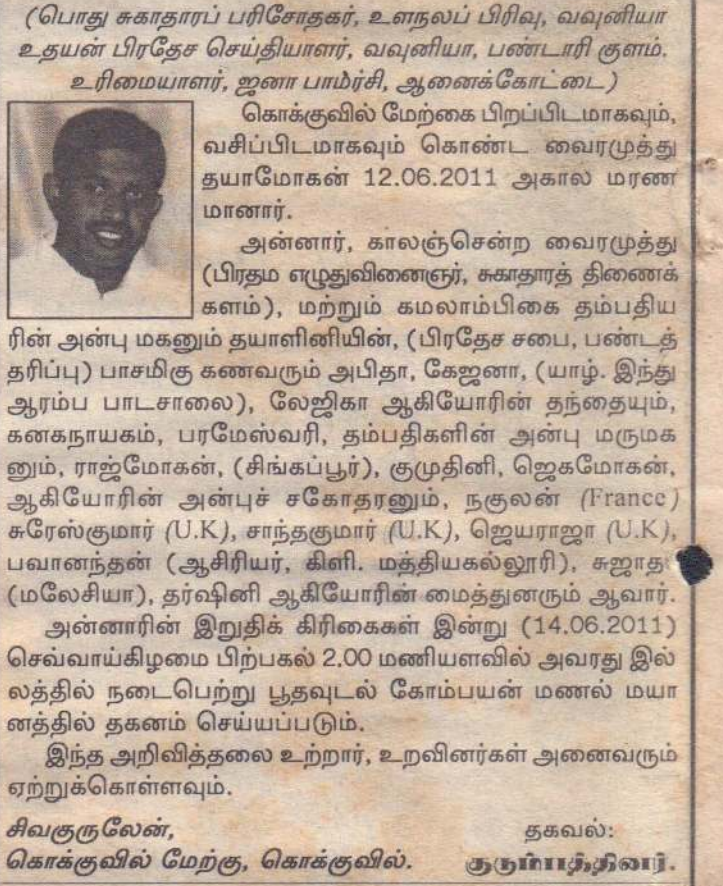 (பொது சுகாதாரப் பரிசோதகர், உளநலப் பிரிவு, வவுனியா
உதயன் பிரதேச செய்தியாளர், வவுனியா, பண்டாரி குளம்.
உரிமையாளர், ஜனா பாமர்சி, ஆனைக்கோட்டை)
கொக்குவில் மேற்கை பிறப்பிடமாகவும்,
வசிப்பிடமாகவும் கொண்ட வைரமுத்து
தயாமோகன் 12.06.2011 அகால மரண
மானார்.
அன்னார், காலஞ்சென்ற வைரமுத்து
(பிரதம எழுதுவினைஞர், சுகாதாரத் திணைக்
களம்), மற்றும் கமலாம்பிகை தம்பதிய
ரின் அன்பு மகனும் தயாளினியின், (பிரதேச சபை, பண்டத்
தரிப்பு) பாசமிகு கணவரும் அபிதா, கேஜனா, (யாழ். இந்து
ஆரம்ப பாடசாலை), லேஜிகா ஆகியோரின் தந்தையும்,
கனகநாயகம், பரமேஸ்வரி, தம்பதிகளின் அன்பு மருமக
னும், ராஜ்மோகன், (சிங்கப்பூர்), குமுதினி, ஜெகமோகன்,
ஆகியோரின் அன்புச் சகோதரனும், நகுலன் (France)
சுரேஸ்குமார் (U.K), சாந்தகுமார் (U.K), ஜெயராஜா (U.K),
பவானந்தன் (ஆசிரியர், கிளி. மத்தியகல்லூரி),
(மலேசியா), தர்ஷினி ஆகியோரின் மைத்துனரும் ஆவார்.
அன்னாரின் இறுதிக் கிரிகைகள் இன்று (14.06.2011)
செவ்வாய்கிழமை பிற்பகல் 2.00 மணியளவில் அவரது இல்
லத்தில் நடைபெற்று பூதவுடல் கோம்பயன் மணல் மயா
னத்தில் தகனம் செய்யப்படும்.
இந்த அறிவித்தலை உற்றார், உறவினர்கள் அனைவரும்
ஏற்றுக்கொள்ளவும்.
சிவகுருலேன், தகவல்:
கொக்குவில் மேற்கு, கொக்குவில். குடும்பத்தினர்.